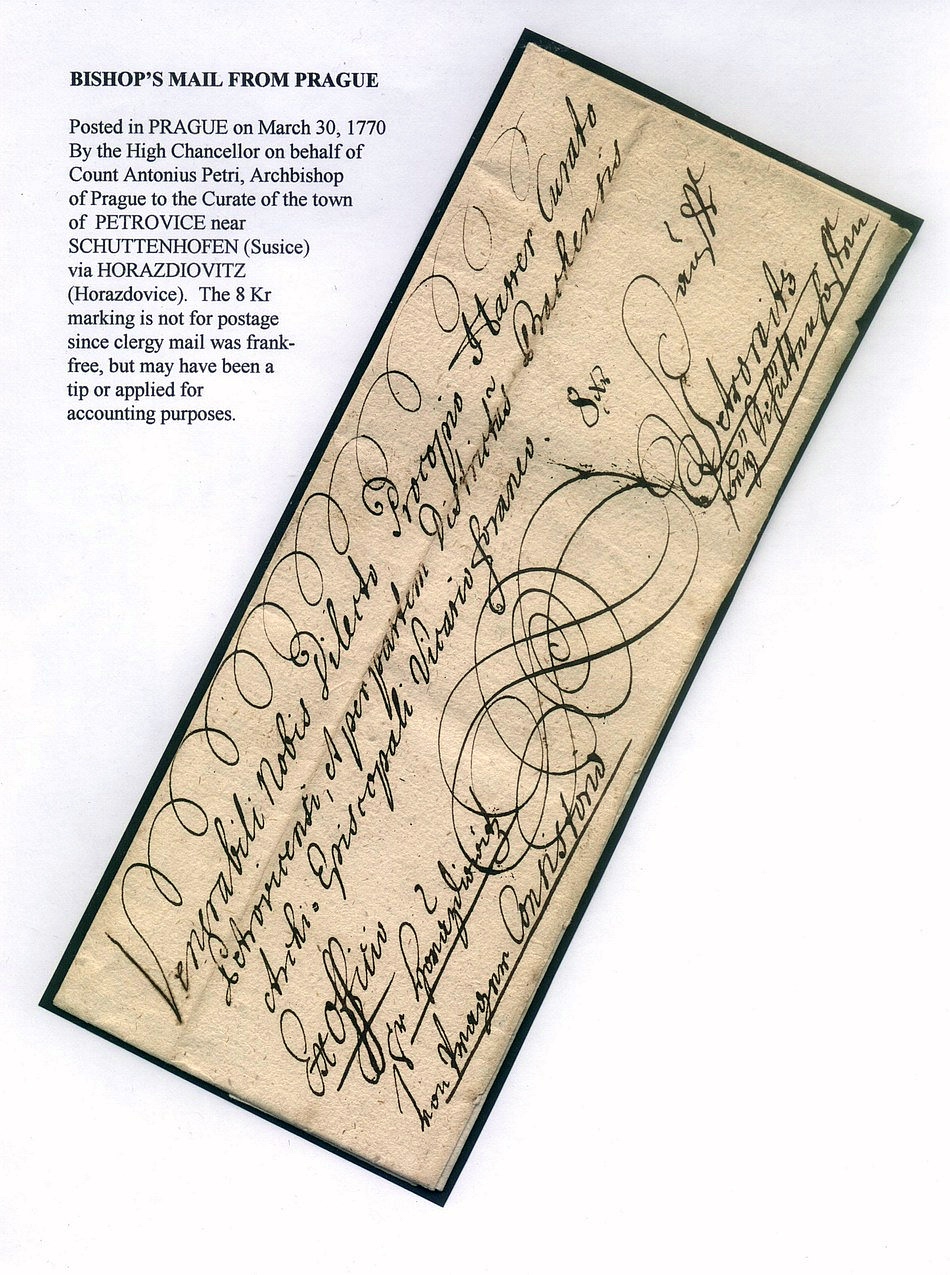 BISHOP'S MAIL FROM PRAGUE
Posted in PRAGUE on March 30, 1770
By the High Chancellor on behalf of
Count Antonius Petri, Archbishop
of Prague to the Curate of the town
of PETROVICE near
SCHUTTENHOFEN (Susice)
via HORAZDIOVITZ
(Horazdovice). The 8 Kr
marking is not for postage
since clergy mail was frank-
free, but may have been a
tip or applied for
accounting purposes.
Venerabili Nobis Dilecto Procopio Curato
Petrovicensi, et per partem Districtus Prachensis
Archi-Episcopali Vicario foraneo.
Ex Officio
Horazdiowitz
Consistorio
Petrowitz